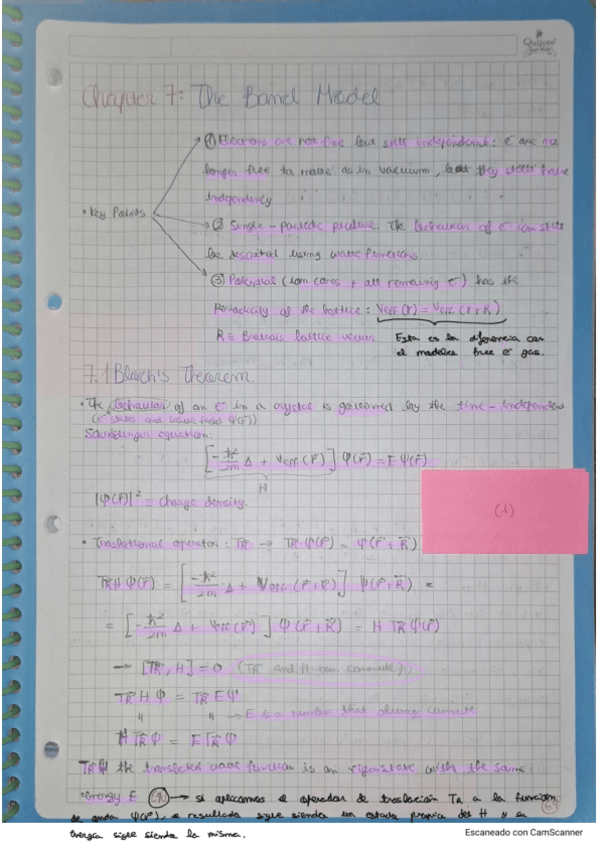 Chapter 7: The Band Model
① Electrons are not free but still independent: e⁻ are no
longer free to move as in vacuum, but they still have
independency
• Key Points
② Single-particle picture. The behaviour of e⁻ can still
be described using wave functions
③ Potential (ion cores + all remaining e⁻) has the
periodicity of the lattice: Veff(r) = Veff(r+R)
R = Bravais lattice vector. Esta es la diferencia con
el modelo free e⁻ gas.
7.1 Bloch's Theorem
• The behaviour of an e⁻ in a crystal is governed by the time-independent
(e⁻ states and wave Ψ(r))
Schrödinger equation:
[-ħ²/2m Δ + Veff(r⃗)] Ψ(r⃗) = E Ψ(r⃗)
H
|Ψ(r⃗)|² = charge density.
(1)
• Traslational operator: TR → TR Ψ(r⃗) = Ψ(r⃗ + R⃗)
TR H Ψ(r⃗) = [-ħ²/2m Δ + Veff(r⃗+R⃗)] Ψ(r⃗+R⃗) =
= [-ħ²/2m Δ + Veff(r⃗)] Ψ(r⃗+R⃗) = H TR Ψ(r⃗)
→ [TR, H] = 0 (TR and H can commute)
TR H Ψ = TR E Ψ
" " → E is a number that always commute
H TR Ψ = E TR Ψ
TR Ψ the translated wave function is an eigenstate with the same
energy E → si aplicamos el operador de traslación TR a la función
de onda Ψ(r), el resultado sigue siendo un estado propio del H y su
energía sigue siendo la misma.
Escaneado con CamScanner